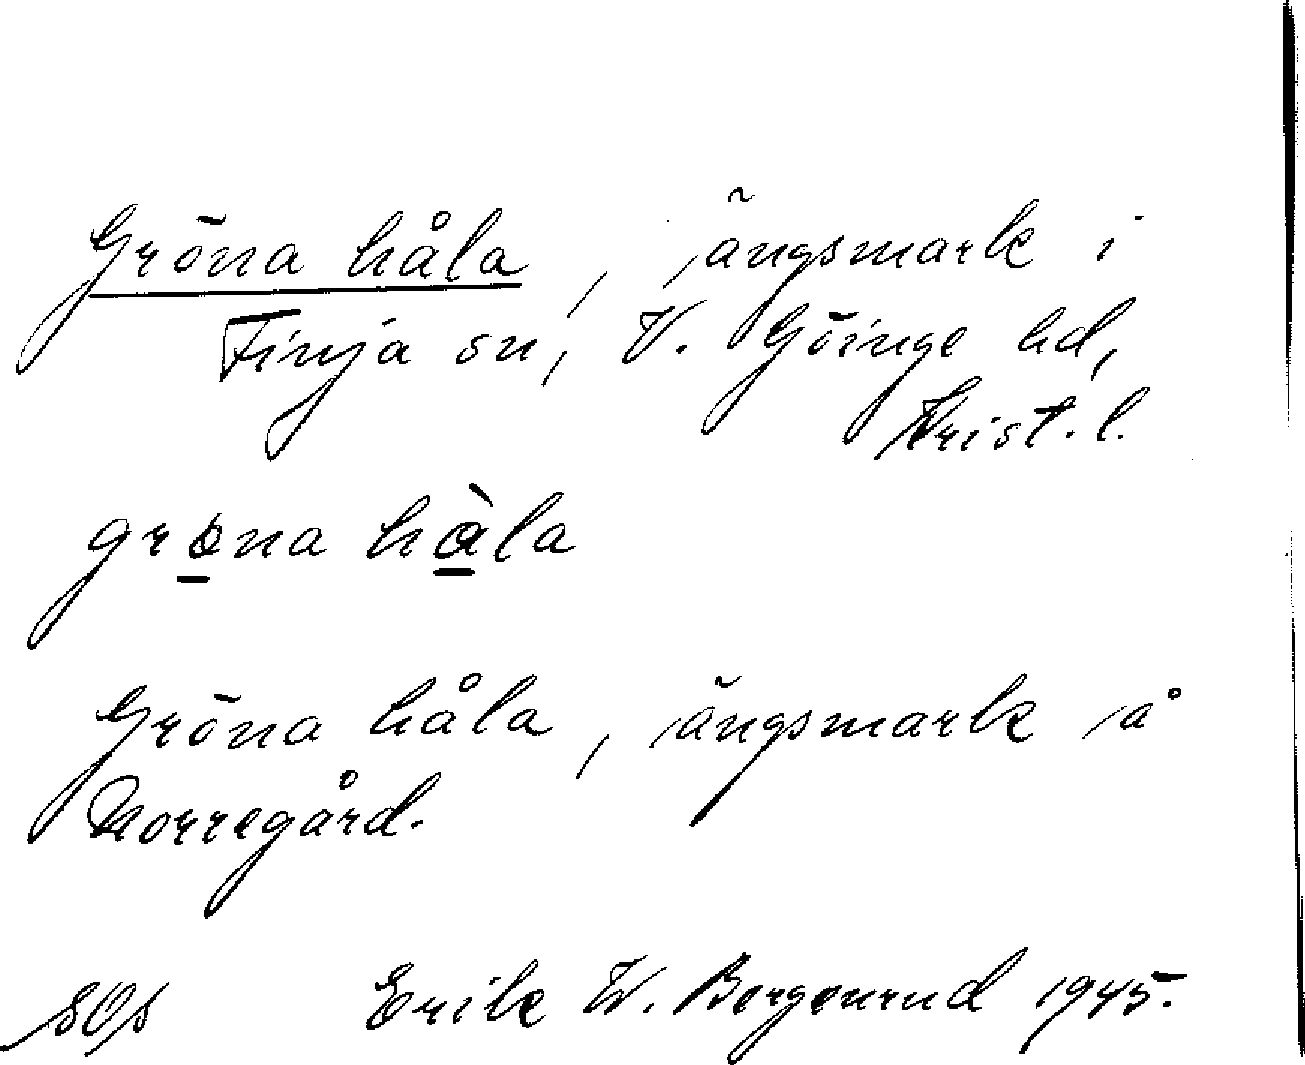 Gröna håla, ängsmark i
Finja sn, V. Göinge hd,
Krist. l.
grøna hàla
Gröna håla, ängsmark å
Norregård.
Erik W. Bergenrud 1945.